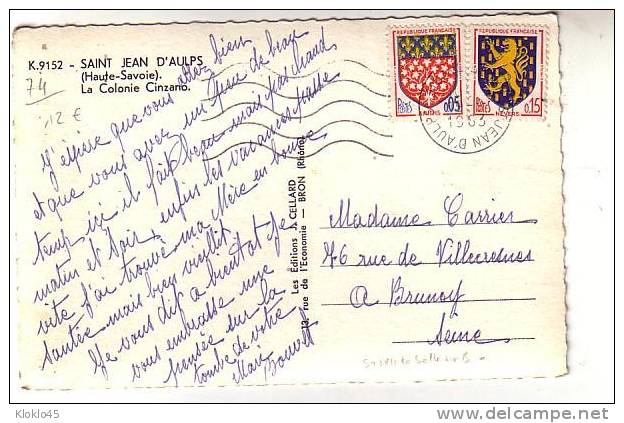 K.9152 - SAINT JEAN D'AULPS
(Haute-Savoie).
La Colonie Cinzano.
74
12 €
J'espère que vous allez bien
et que vous avez un peu de beau
temp ici il fait beau mais pas chaud
matin et soir, enfin les vacances passe
vite j'ai trouvé ma Mère en bonne
santée mais bien vieillit
Je vous dit a bientot je
vous embrasse une
pensée sur la
tombe de votre
Man
Les Editions J. CELLARD
13, rue de l'Economie — BRON (Rhône)
REPUBLIQUE FRANÇAISE
POSTES
0,05
AMIENS
REPUBLIQUE FRANÇAISE
POSTES
0,15
NEVERS
1963
JEAN D'AULPS
Madame Carrier
76 rue de Villecresnes
a Brunoy
Seine
Kloklo45
www.delcampe.net